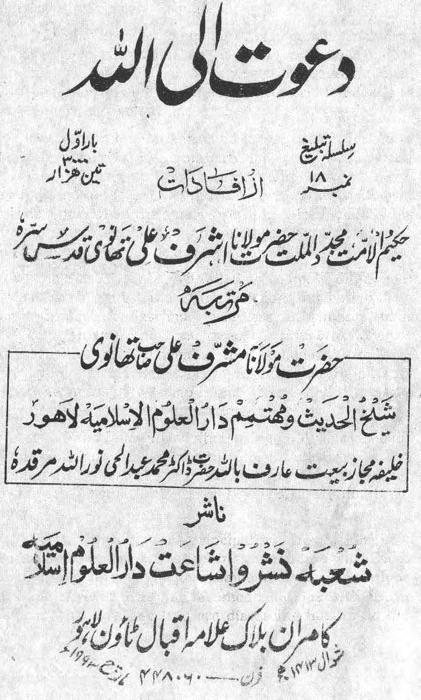 دعوت الی اللہ
سلسلہ تبلیغ
نمبر ۱۸
بار اوّل
۳۰۰۰
تین ہزار
از افادات
حکیم الامت مجدد الملت حضرت مولانا اشرف علی تھانوی قدس سرہ
مرتبہ
حضرت مولانا مشرف علی صاحب تھانوی
شیخ الحدیث و مہتمم دار العلوم الاسلامیہ لاہور
خلیفہ مجاز بیعت عارف باللہ حضرت ڈاکٹر محمد عبدالحی نور اللہ مرقدہ
ناشر
شعبہ نشر و اشاعت دار العلوم اسلامیہ
کامران بلاک علامہ اقبال ٹاؤن لاہور
شوال ۱۴۱۳ھ فون ۴۴۸۰۶۰ مارچ ۱۹۹۳ء